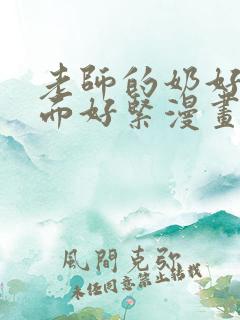 老師的奶好
而好緊漫畫
風間克弥
未任同意禁止結載